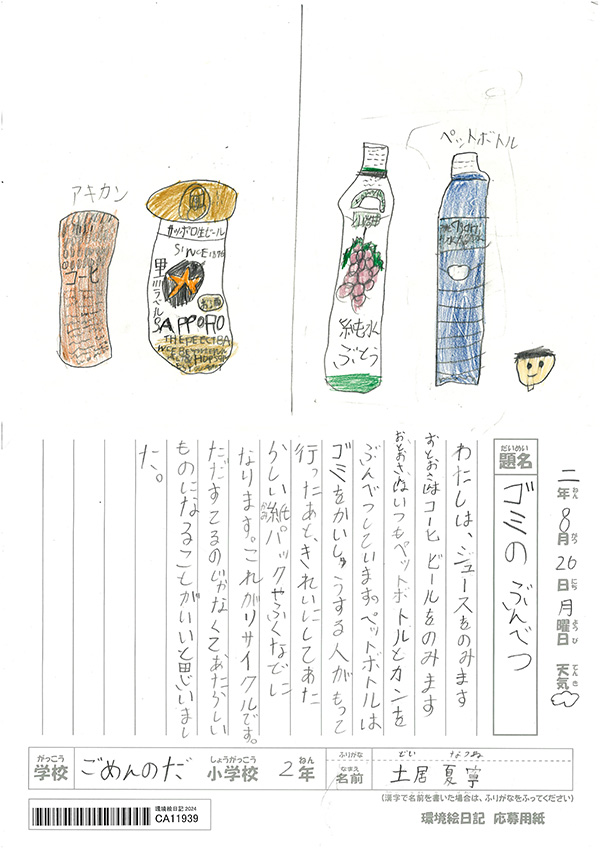 アキカン
コーヒ
サッポロ生ビール
SINCE 1876
黒ラベル
お酒
SAPPORO
THE PERFECT BA
小岩井
純水
ぶどう
ペットボトル
二年8月26日月曜日 天気
ねん がつ にち ようび てんき
だいめい
題名 ゴミの ぶんべつ
わたしは、ジュースをのみます
おとおさはコーヒ ビールをのみます
おとおさんはいつもペットボトルとカンを
ぶんべつしています。ペットボトルは
ゴミをかいしゅうする人がもって
行ったあと、きれいにしてあた
らしい紙パックやふくなどに
なります。これがリサイクルです。
ただすてるのじゃなくて、あたらしい
ものになることがいいと思いまし
た。
がっこう しょうがっこう ねん ふりがな どい なつね
学校 ごめんのだ 小学校 2年 なまえ 名前 土居 夏寧
(漢字で名前を書いた場合は、ふりがなをふってください)
環境絵日記2024
CA11939
環境絵日記 応募用紙